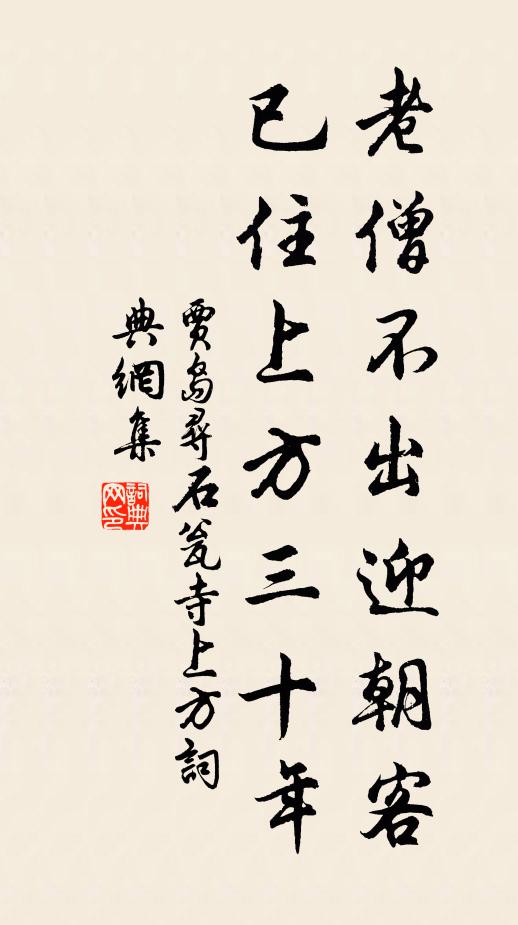 老僧不出迎朝客
已住上方三十年
賈島尋石瓮寺上方詞
典網集
詞典
网印